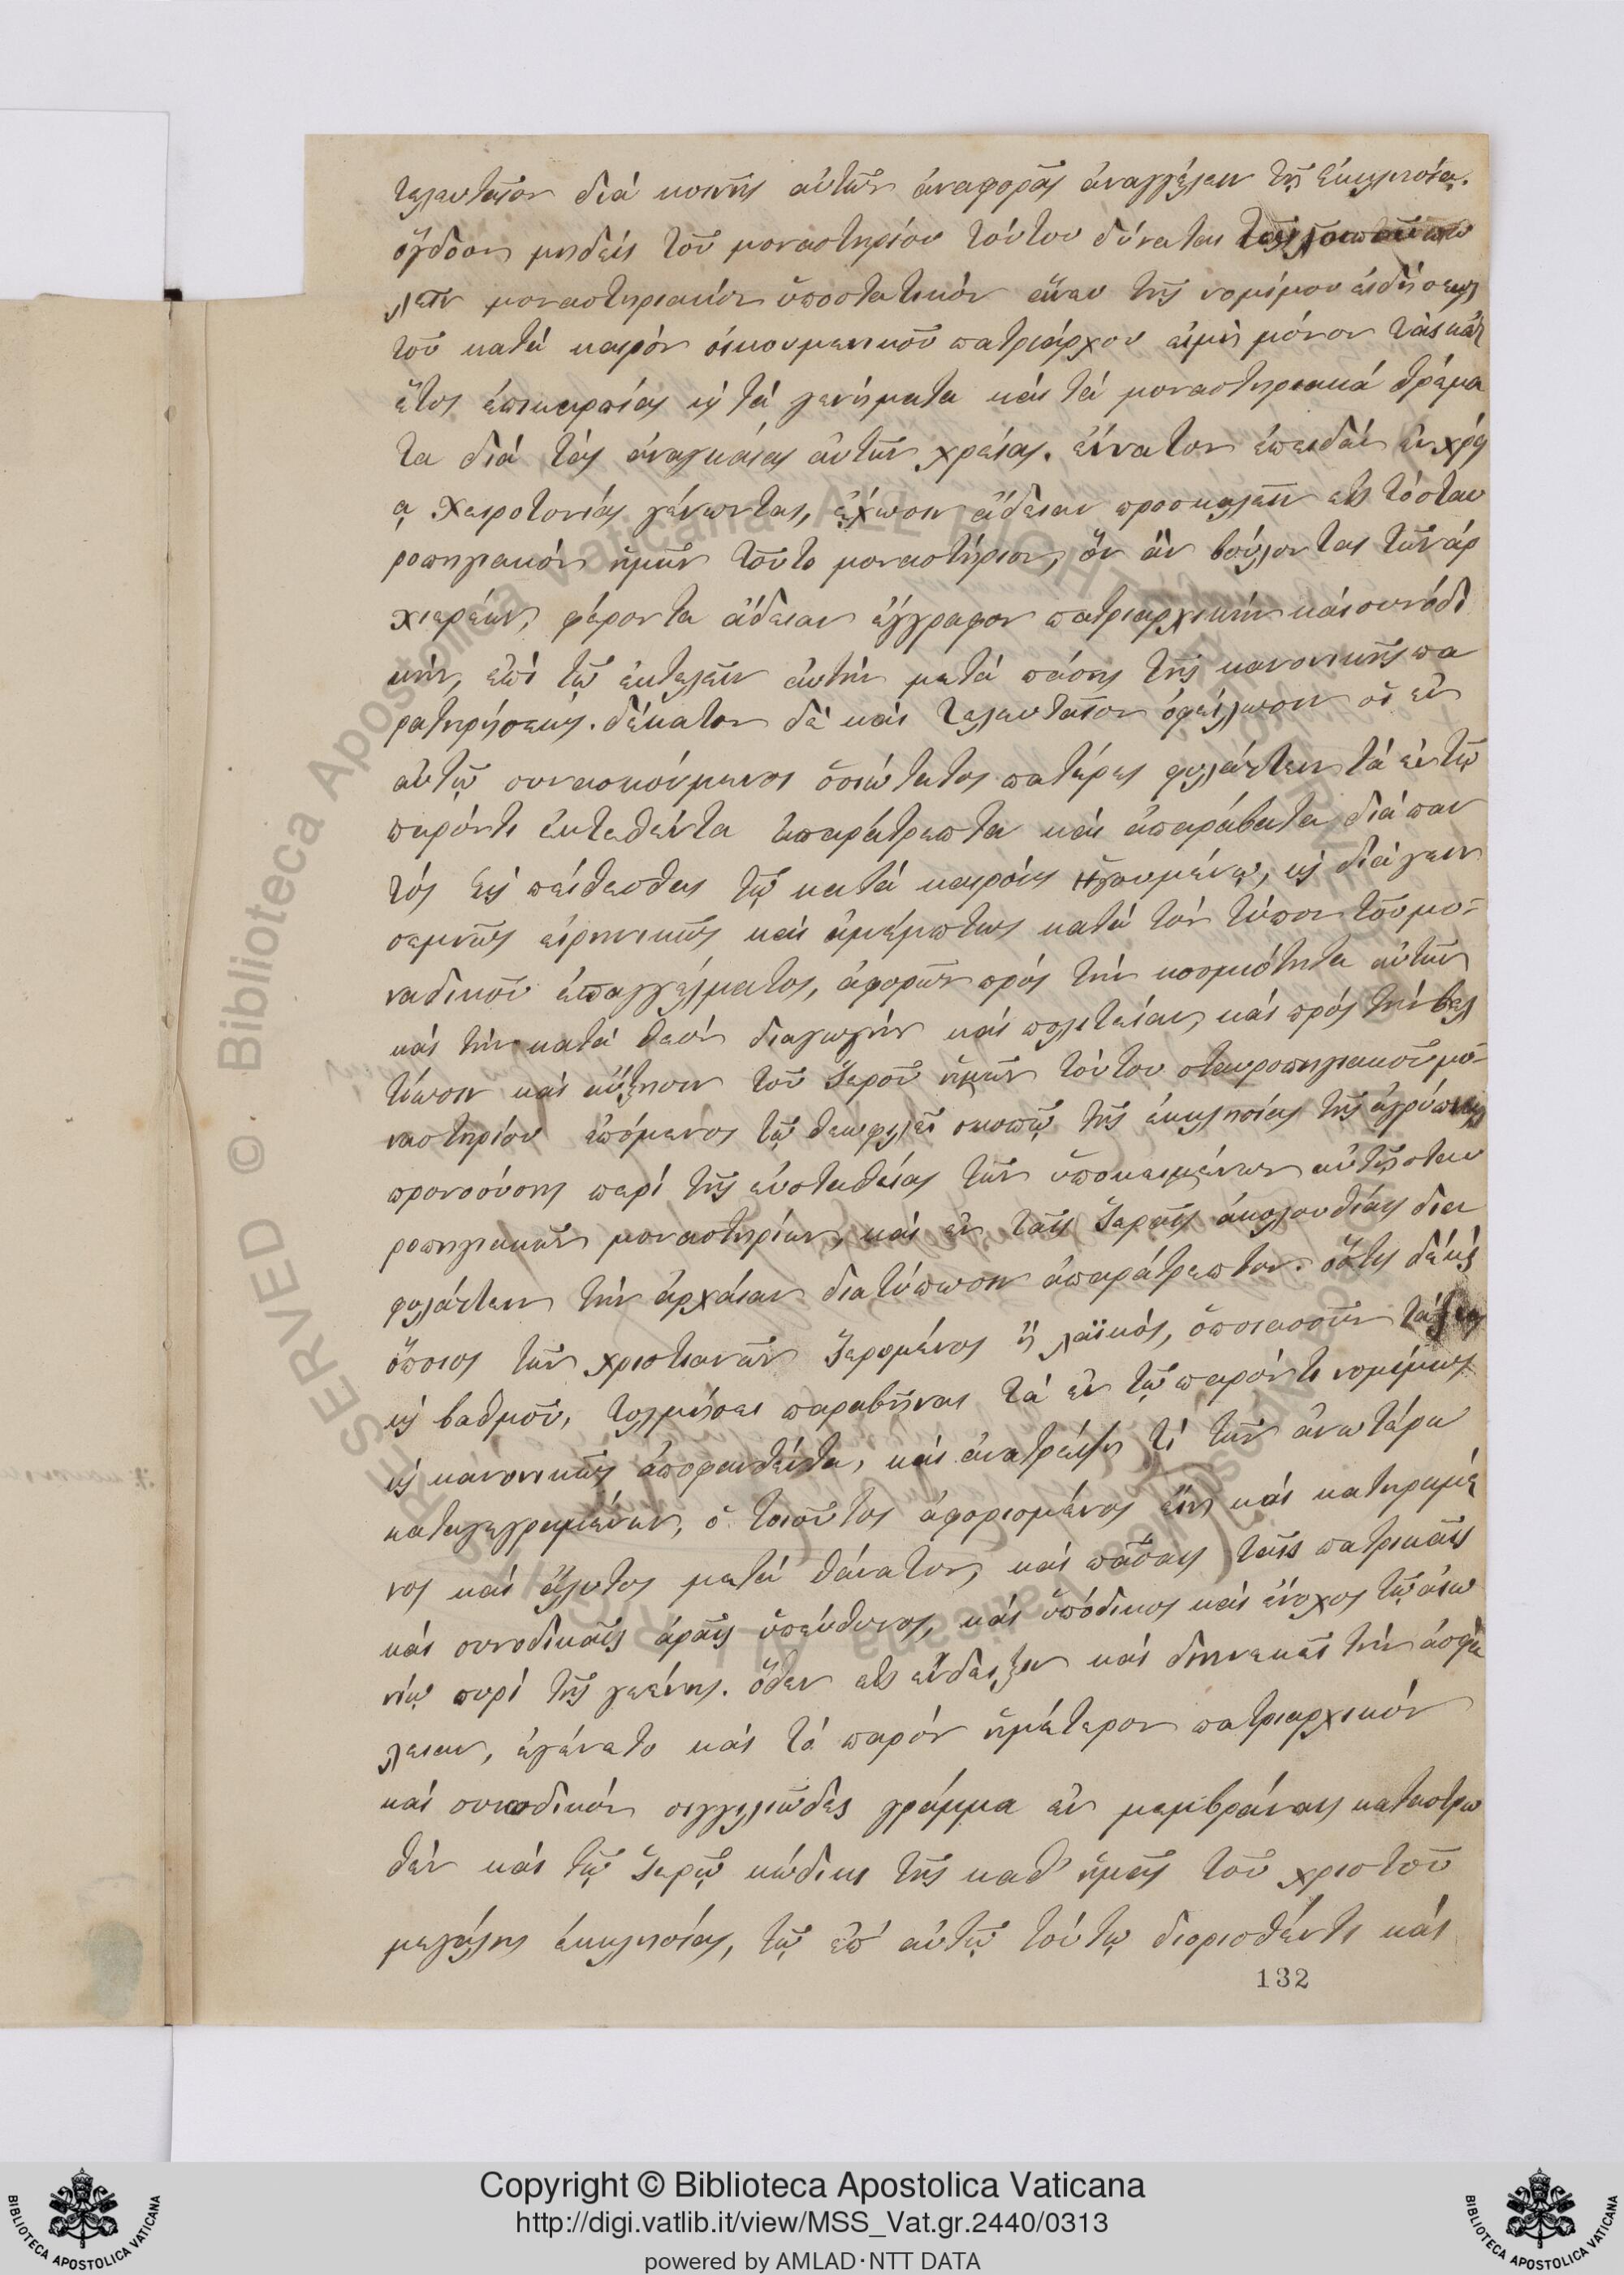 τελευταῖον διά κοινῆς αὐτῶν ἀναφορᾶς ἀναγγέλειν τῇ ἐκκλησίᾳ.
ὄγδοον μηδείς τοῦ μοναστηρίου τούτου δύναται
λεῖν μοναστηριακόν ὑποστατικόν ἄνευ τῆς νομίμου εἰδήσεως
τοῦ κατά καιρόν οἰκουμενικοῦ πατριάρχου εἰμή μόνον τάς κατ
ἔτος ἐπικαρπίας κ τά γενήματα καί τά μοναστηριακά θρέμα
τα διά τάς ἀναγκαίας αὐτῶν χρείας. ἔννατον ἐπειδάν ἐν χρεί
ᾳ χειροτονίας γένωνται, ἔχωσιν ἄδειαν προσκαλεῖν εἰς τό σταυ
ροπηγιακόν ἡμῶν τοῦτο μοναστήριον, ὅν ἄν βούλονται τῶν ἀρ
χιερέων, φέροντα ἄδειαν ἔγγραφον πατριαρχικήν καί συνοδι
κήν, ἐπί τῷ ἐκτελεῖν αὐτήν μετά πάσης τῆς κανονικῆς πα
ρατηρήσεως. δέκατον δέ καί τελευταῖον ὀφείλωσιν οἱ ἐν
αὐτῷ συνασκούμενοι ὁσιώτατοι πατέρες φυλάττειν τά ἐν τῷ
παρόντι ἐκτεθέντα ἀπαράτρεπτα καί ἀπαράβατα διά παν
τός κ πείθεσθαι τῷ κατά καιρόν ἡγουμένῳ, κ διάγειν
σεμνῶς εἰρηνικῶς καί ἀμέμπτως κατά τόν τύπον τοῦ μο-
ναδικοῦ ἐπαγγέλματος, ἀφορῶν πρός τήν κοσμιότητα αὐτῶν
καί τήν κατά θεόν διαγωγήν καί πολιτείαν, καί πρός τήν βελ
τίωσιν καί αὔξησιν τοῦ ἱεροῦ ἡμῶν τούτου σταυροπηγιακοῦ μο-
ναστηρίου ἑπόμενοι τῷ θεοφιλεῖ σκοπῷ τῆς ἐκκλησίας τῆς ἀγρύπνως
προνοούσης περί τῆς εὐσταθείας τῶν ὑποκειμένων αὐτῇ σταυ
ροπηγιακῶν μοναστηρίων, καί ἐν ταῖς ἱεραῖς ἀκολουθίαις δια
φυλάττειν τήν ἀρχαίαν διατύπωσιν ἀπαράτρεπτον. ὅστις δέ κ
ὅποιος τῶν χριστιανῶν ἱερομένος ἤ λαϊκός, ὁποιασοῦν τάξεως
κ βαθμοῦ, τολμήσει παραβῆναι τά ἐν τῷ παρόντι νομίμως
κ κανονικῶς ἀποφανθέντα, καί ἀνατρέψῃ τι τῶν ἀνωτέρω
καταγεγραμμένων, ὁ τοιοῦτος ἀφορισμένος εἴη καί κατηραμέ
νος καί ἄλυτος μετά θάνατον, καί πᾶσαις ταῖς πατρικαῖς
καί συνοδικαῖς ἀραῖς ὑπεύθυνος, καί ὑπόδικος καί ἔνοχος τῷ αἰω
νίῳ πυρί τῆς γεένης. ὅθεν εἰς ἔνδειξιν καί διηνεκεῖ τήν ἀσφά
λειαν, ἐγένετο καί τό παρόν ἡμέτερον πατριαρχικόν
καί συνοδικόν σιγγιλιῶδες γράμμα ἐν μεμβράναις καταστρω
θέν καί τῷ ἱερῷ κώδικι τῆς καθ' ἡμᾶς τοῦ χριστοῦ
μεγάλης ἐκκλησίας, τῷ ἐπ' αὐτῷ τούτῳ διορισθέντι καί
132
RESERVED © · Biblioteca Apostolica Vaticana · ALL RIGHTS RESERVED © · Biblioteca Apostolica Vaticana · ALL RIGHTS
BIBLIOTECA APOSTOLICA VATICANA
Copyright © Biblioteca Apostolica Vaticana
http://digi.vatlib.it/view/MSS_Vat.gr.2440/0313
powered by AMLAD·NTT DATA
BIBLIOTECA APOSTOLICA VATICANA